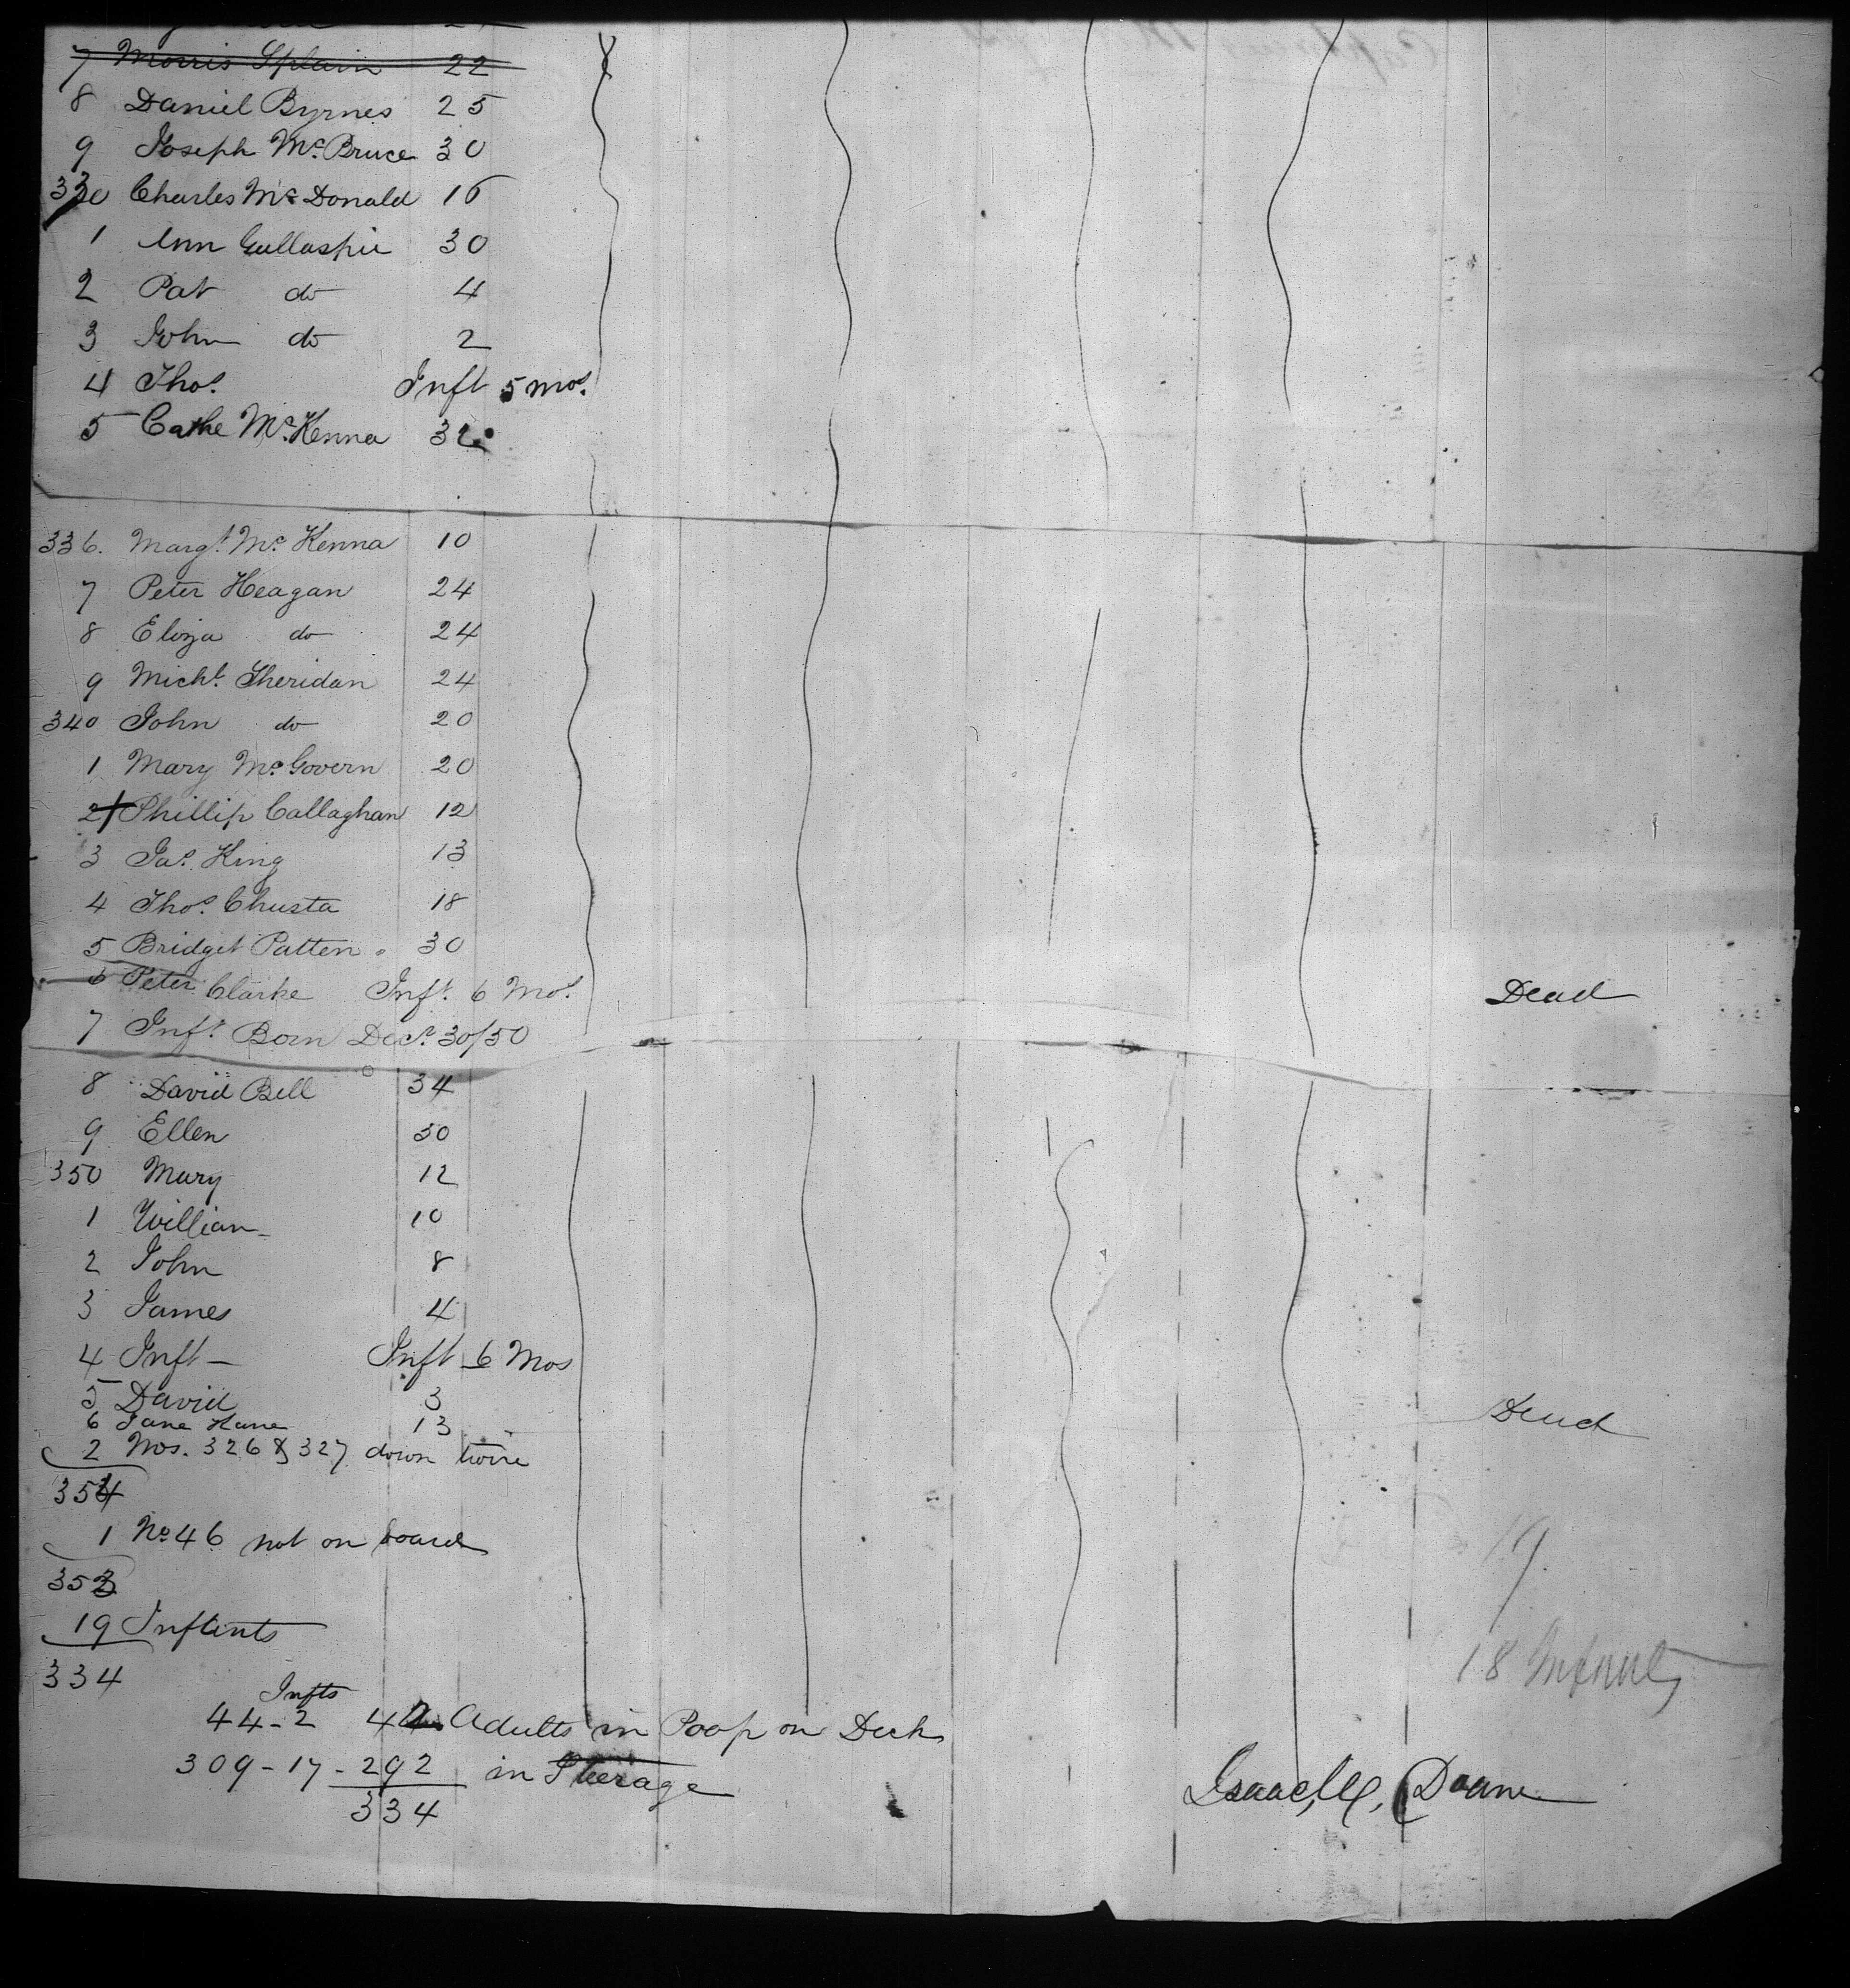 7 Morris Splain 22
8 Daniel Byrnes 25
9 Joseph Mc. Bruce 30
330 Charles Mc Donald 16
1 Ann Gullaspie 30
2 Pat do 4
3 John do 2
4 Thos. Inft 5 mos.
5 Cathe Mc. Kenna 32
336. Margt. Mc Kenna 10
7 Peter Heagan 24
8 Eliza do 24
9 Michl. Sheridan 24
340 John do 20
1 Mary Mc Govern 20
2 Phillip Callaghan 12
3 Jas. King 13
4 Thos. Chusta 18
5 Bridget Patten 30
6 Peter Clarke Inft. 6 Mos. Dead
7 Inft. Born Decr. 30/50
8 David Bell 34
9 Ellen 30
350 Mary 12
1 William 10
2 John 8
3 James 4
4 Inft - Inft 6 Mos
5 David 3 Dead
6 Jane Hane 13
2 Nos. 326 & 327 down twice
354
1 No 46 not on board
353
19 Inftints
19
334
18 Infants
Infts
44 - 2 42 Adults in Poop on Deck
309 - 17 - 292 in Steerage
334
Isaac M. Doane